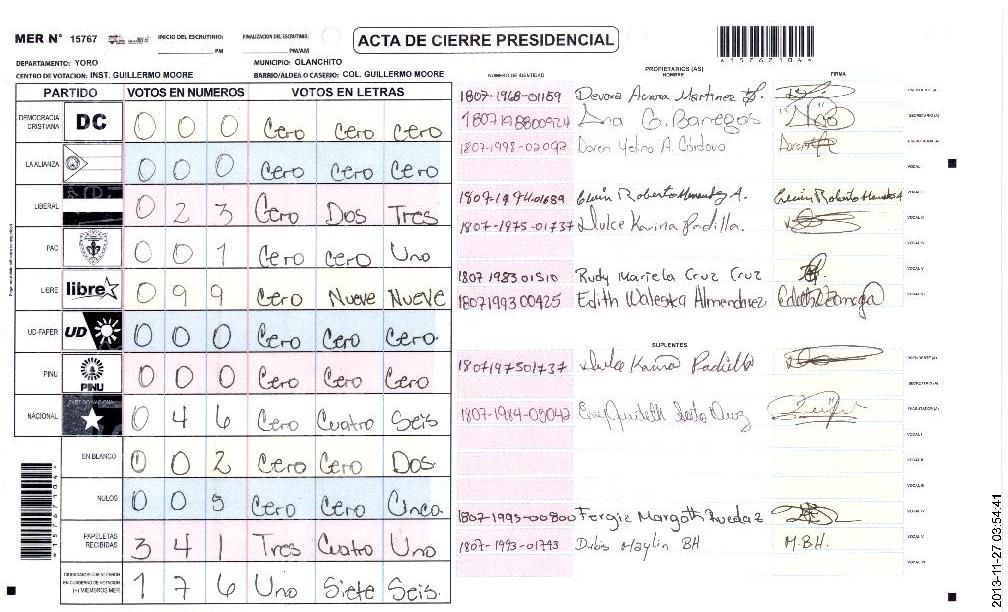 MER N° 15767 INICIO DEL ESCRUTINIO: PM FINALIZACION DEL ESCRUTINIO: PM/AM ACTA DE CIERRE PRESIDENCIAL
DEPARTAMENTO: YORO MUNICIPIO: OLANCHITO
CENTRO DE VOTACION: INST. GUILLERMO MOORE BARRIO/ALDEA O CASERIO: COL. GUILLERMO MOORE
PARTIDO VOTOS EN NUMEROS VOTOS EN LETRAS
DEMOCRACIA CRISTIANA DC 0 0 0 Cero Cero Cero
LA ALIANZA 0 0 0 Cero Cero Cero
LIBERAL 0 2 3 Cero Dos Tres
PAC 0 0 1 Cero Cero Uno
LIBRE libre 0 9 9 Cero Nueve Nueve
UD-FAPER UD 0 0 0 Cero Cero Cero.
PINU PINU 0 0 0 Cero Cero Cero
NACIONAL 0 4 6 Cero Cuatro Seis
EN BLANCO 0 0 2 Cero Cero Dos
NULOS 0 0 5 Cero Cero Cinco.
PAPELETAS RECIBIDAS 3 4 1 Tres Cuatro Uno
CIUDADANOS QUE VOTARON EN CUADERNO DE VOTACION (+) MIEMBROS MER 1 7 6 Uno Siete Seis.
NUMERO DE IDENTIDAD PROPIETARIOS (AS) NOMBRE FIRMA
1807-1968-01159 Devora Aurora Martinez PRESIDENTE (A)
1807198800924 Ana G. Banegas SECRETARIO (A)
1807-1998-02092 Doren Yelina A. Córdova ESCRUTADOR (A)
VOCAL I
Roberto A.
1807-1975-01737 Dulce Karina Padilla. VOCAL III
VOCAL IV
1807 1983 01510 Rudy Mariela Cruz Cruz VOCAL V
1807199300425 Edith Waleska Almendarez
SUPLENTES
1807197501737 Dulce Karina Padilla PRESIDENTE (A)
SECRETARIO (A)
1807-1984-03042 ESCRUTADOR (A)
VOCAL I
VOCAL II
VOCAL III
1807-1995-00800 Margoth VOCAL IV
1807-1993-01743 Maylin BH M.B.H. VOCAL V
VOCAL VI
2013-11-27 03:54:41